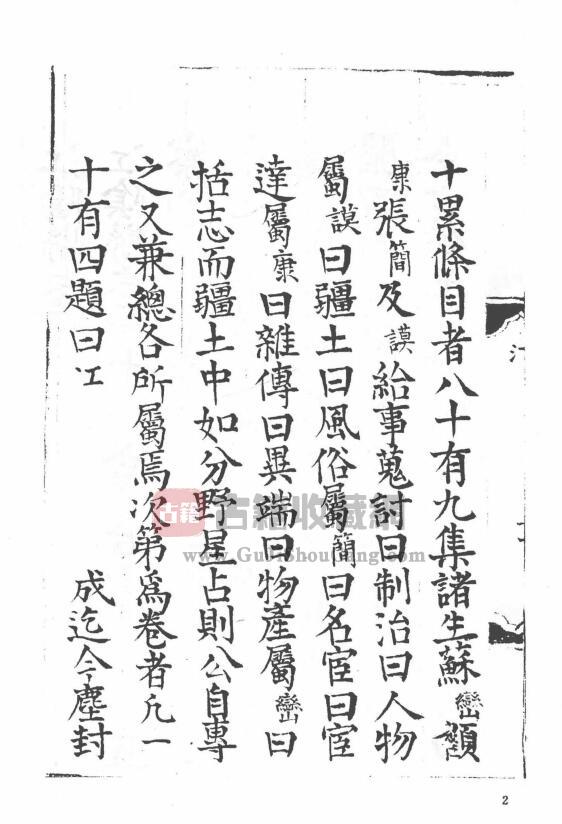 十累條目者八十有九集諸生蘇巒
康張簡及謨給事蒐討曰制治曰人物
屬謨曰疆土曰風俗屬簡曰名宦曰宦
達屬康曰雜傳曰異端曰物產屬巒曰
括志而疆土中如分野星占則公自專
之又兼總各所屬焉次第爲卷者凡一
十有四題曰江 成迄今塵封
古籍
古籍收藏網
www.GuJiShouCang.com
2